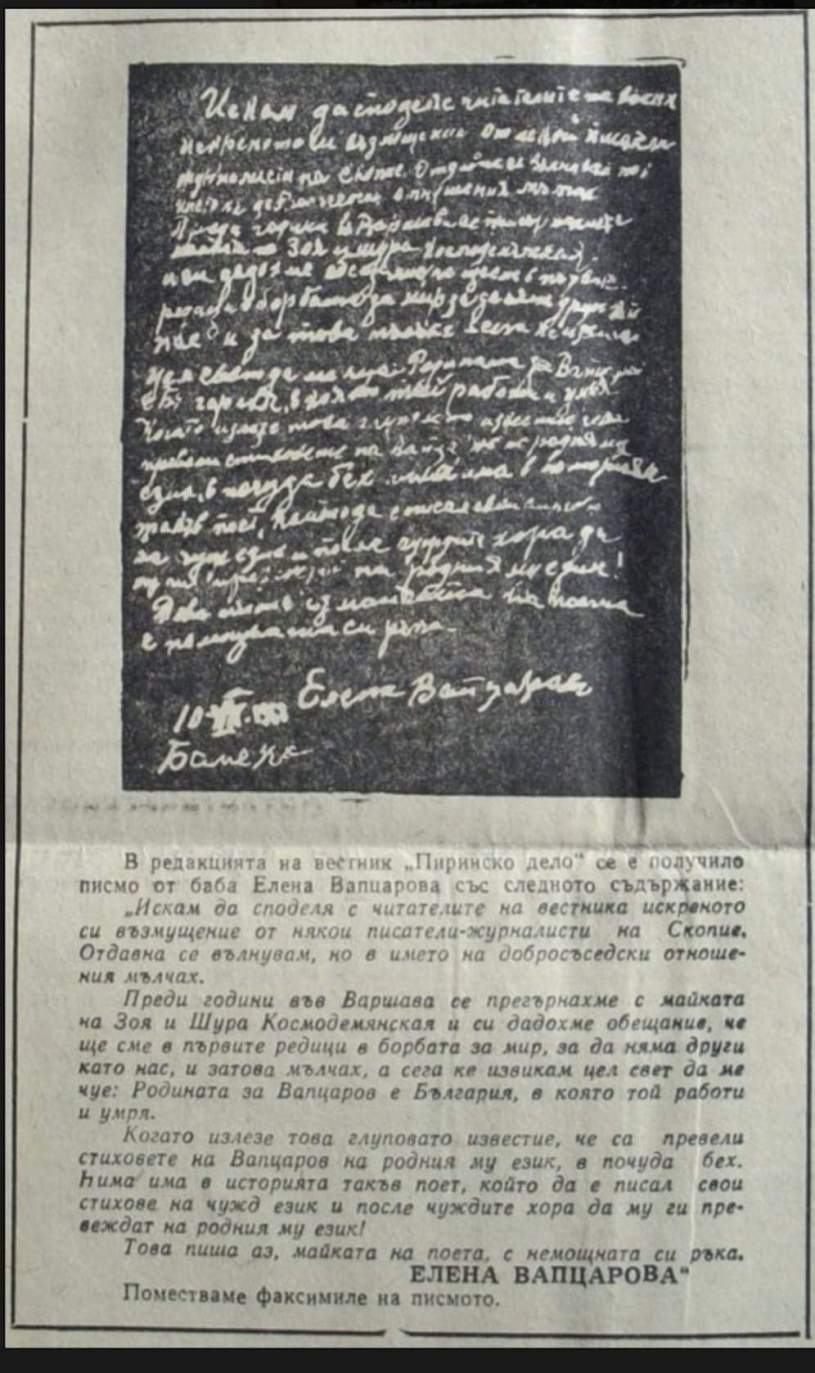 Искам да споделя читателите на
искреното си възмущение от
журналисти на Скопие. Отдавна се
Преди години в Варшава се
на Зоя и Шура Космодемянская
дадохме
борбата за мир за да няма други
нас и за това мълчах сега
цел свет да ме чуе Родината за
България, в която той работи и умря
Когато излезе това глуповато известие че са
превели стиховете на на родния му
език, в почуда бех има ли в историята
такъв поет, който да е писал свои
на чужд език и после чуждите хора да
му ги на родния му език!
Това пиша аз майката на поета
с немощната си ръка.
Елена Вапцарова
10
Банско
В редакцията на вестник „Пиринско дело“ се е получило
писмо от баба Елена Вапцарова със следното съдържание:
„Искам да споделя с читателите на вестника искреното
си възмущение от някои писатели-журналисти на Скопие.
Отдавна се вълнувам, но в името на добросъседски отноше-
ния мълчах.
Преди години във Варшава се прегърнахме с майката
на Зоя и Шура Космодемянская и си дадохме обещание, че
ще сме в първите редици в борбата за мир, за да няма други
като нас, и затова мълчах, а сега ке извикам цел свет да ме
чуе: Родината за Вапцаров е България, в която той работи
и умря.
Когато излезе това глуповато известие, че са превели
стиховете на Вапцаров на родния му език, в почуда бех.
Нима има в историята такъв поет, който да е писал свои
стихове на чужд език и после чуждите хора да му ги пре-
веждат на родния му език!
Това пиша аз, майката на поета, с немощната си ръка.
ЕЛЕНА ВАПЦАРОВА“
Поместваме факсимиле на писмото.